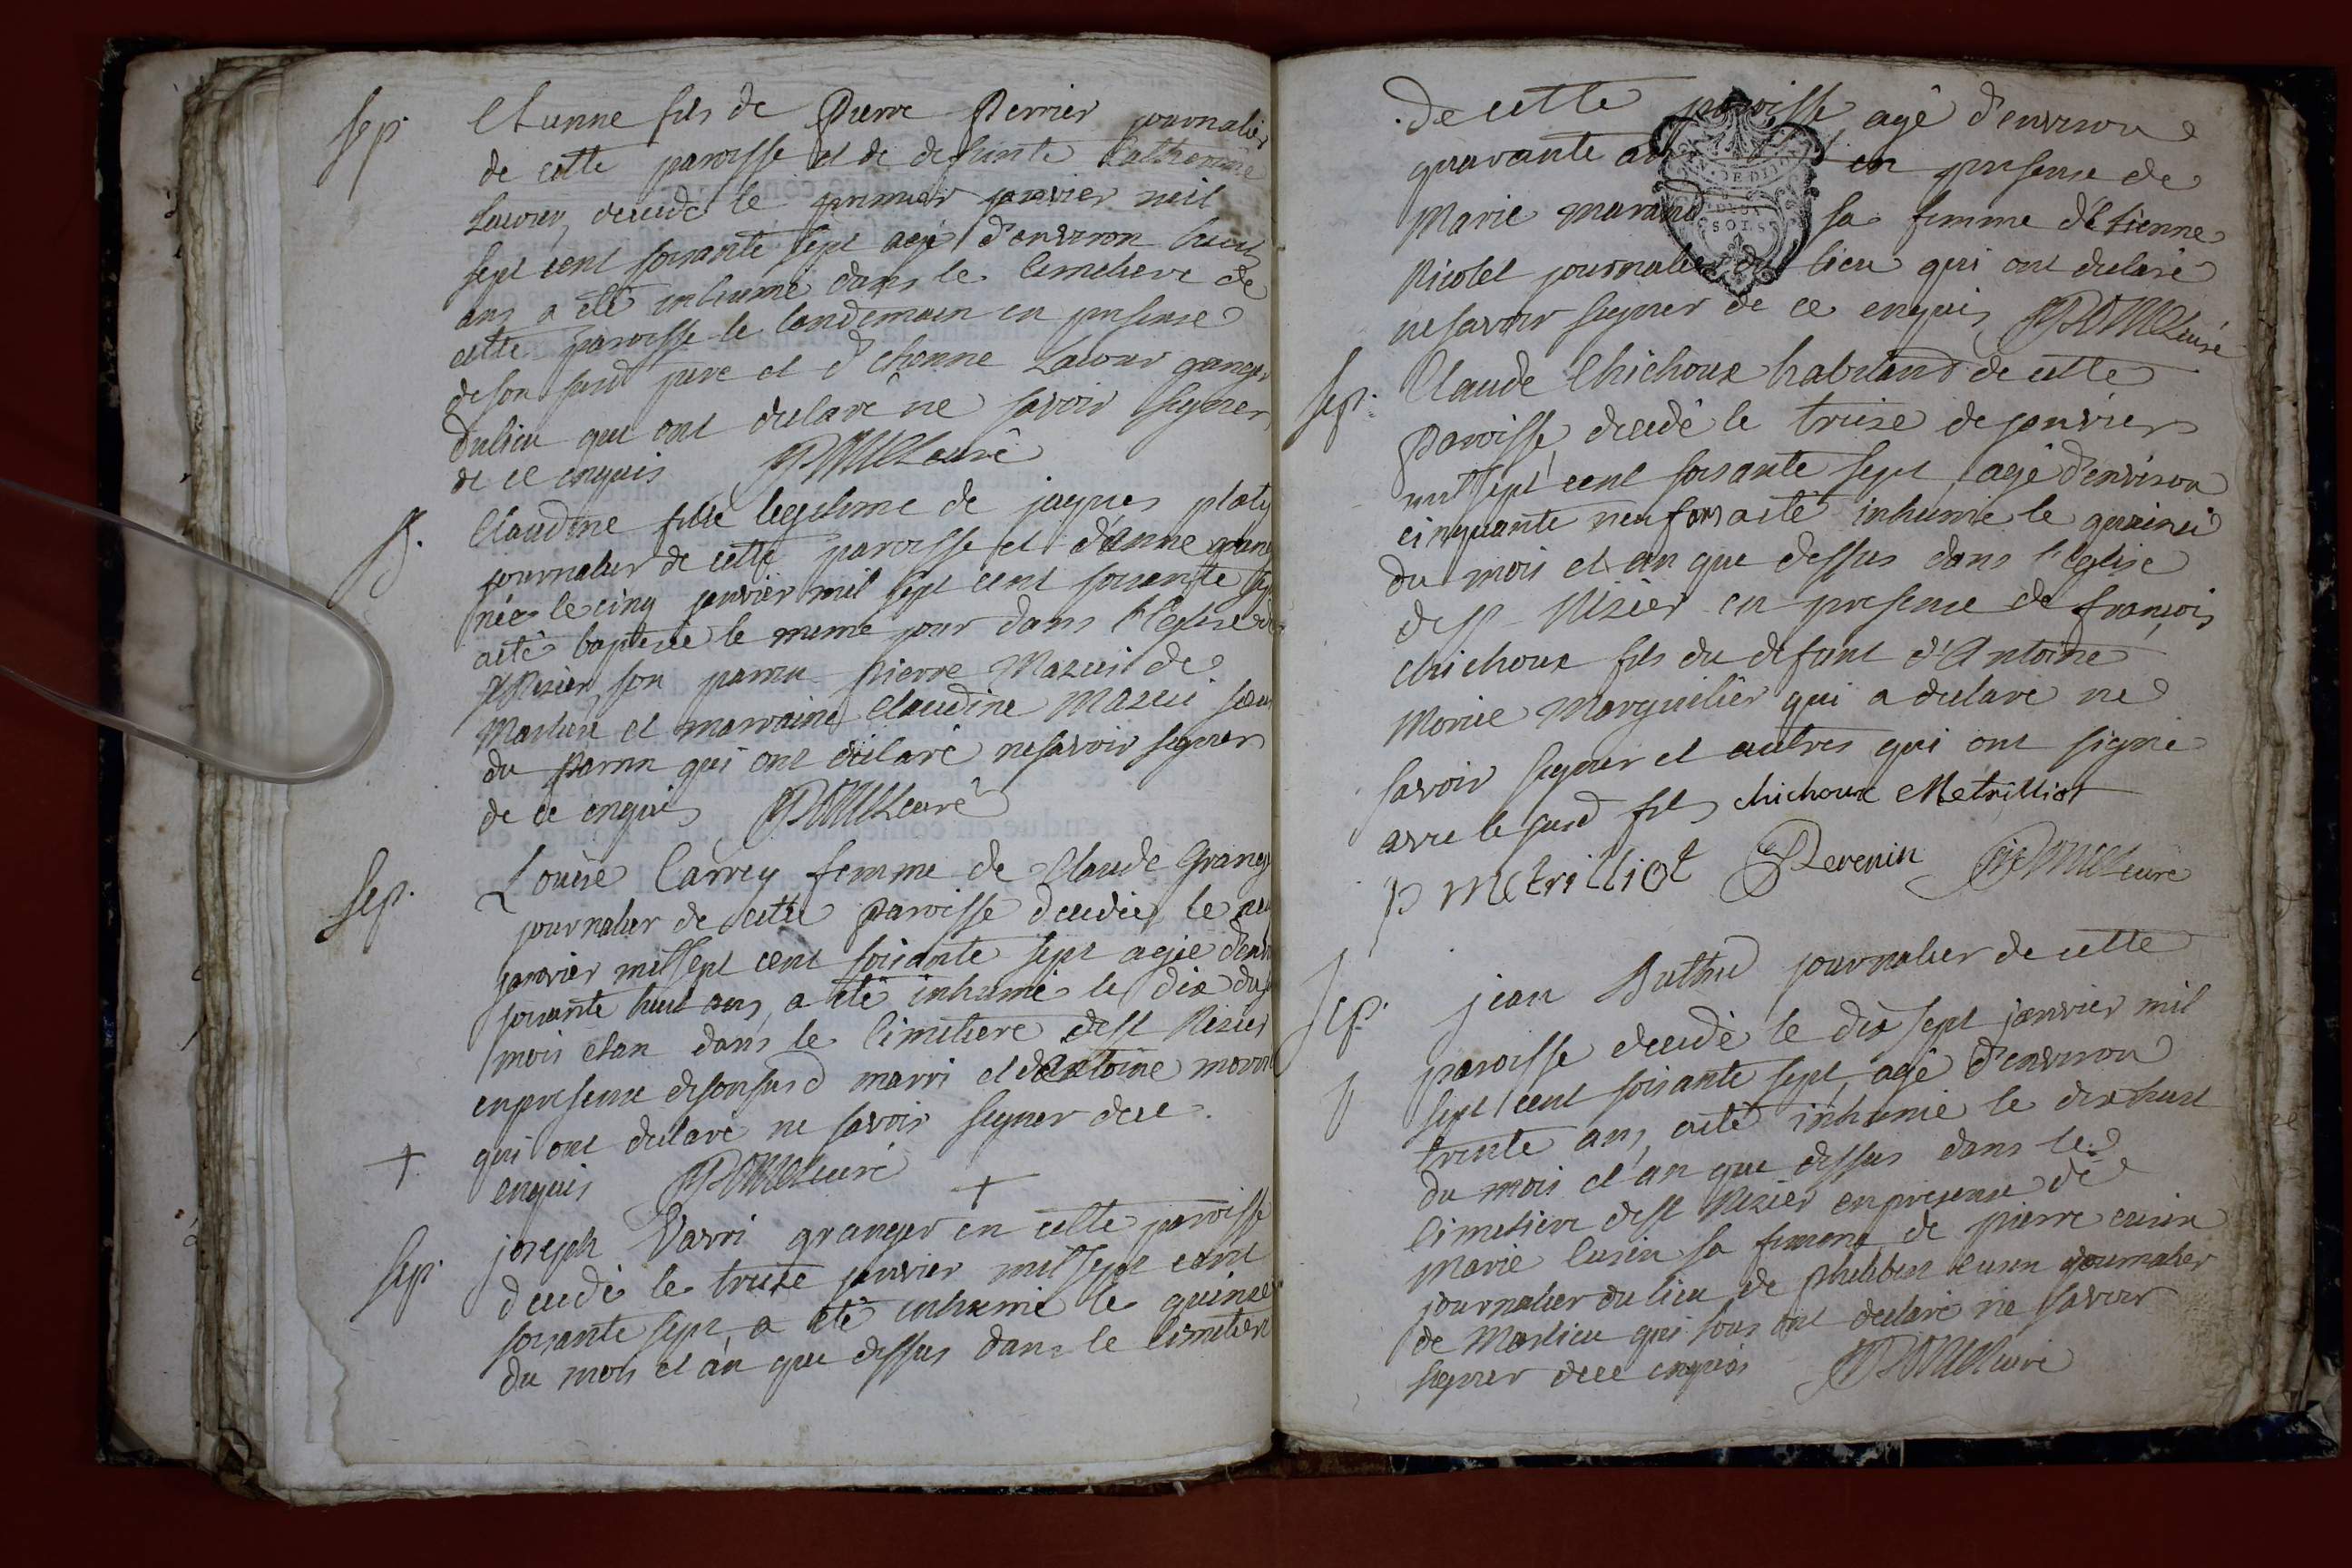 Sep. Etienne fils de Pierre Perrier journalier
de cette paroisse et de defunte Catherine
Lacour, decedé le premier janvier mil
sept cent soixante sept agé d'environ huit
ans a été inhumé dans le cimetiere de
cette paroisse le landemain en presence
de son susd pere et d'etienne Lacour granger
dulieu qui ont declaré ne savoir signer
de ce enquis curé
B. Claudine fille legitime de jaques
journalier de cette paroisse et d'Anne
née le cinq janvier mil sept cent soixante sept
aeté baptisée le meme jour dans l'Eglise de
st Nisier, son parrin pierre Mazuis de
Marlieu et marraine Claudine Mazui soeur
du parrin qui ont déclaré nesavoir signer
de ce enquis curé
Sep. Louise Carrey femme de Claude Granger
journalier de cette Paroisse decedée le neuf
janvier milsept cent soixante sept agée d'environ
soixante huit ans a été inhumé le dix du
mois etan dans le Cimetiere dest Nisier
enpresence desonsusd marri et d'Antoine
qui ont declaré ne savoir signer dece
enquis curé
Sep. joseph Varri granger en cette paroisse
decedé le treize janvier milsept cent
soixante sept a été inhumé le quinze
du mois et an que dessus dans le Cimetiere
De cette paroisse agé d'environ
quarante ans en presence de
Marie marand sa femme d'Etienne
Nicolet journalier du lieu qui ont declaré
nesavoir signer de ce enquis curé
DE DI
DEUX
SOLS
Sep. Claude Chichoux habitant de cette
Paroisse, decedé le treise de janvier
milsept cent soixante sept, agé d'environ
cinquante neuf ans aeté inhumé le quinze
du mois et an que dessus dans l'Eglise
dest Nisier en presence de françois
chichoux fils du defunt d'Antoine
Morice Marguilier qui a declaré ne
savoir signer et autres qui ont signé
avec le susd fils chichoux Metrilliot
P Metrilliot Revenin curé
Sep. jean Buthod journalier de cette
paroisse decedé le dix sept janvier mil
sept cent soixante sept, agé d'environ
trente ans, aeté inhumé le dixhuit
du mois et an que dessus dans le
Cimetiere dest Nisier enpresence de
Marie Cusin sa femme, de pierre cusin
journalier du lieu, de philibert Cusin journalier
de Marlieu qui tous ont declaré ne savoir
signer dece enquis curé